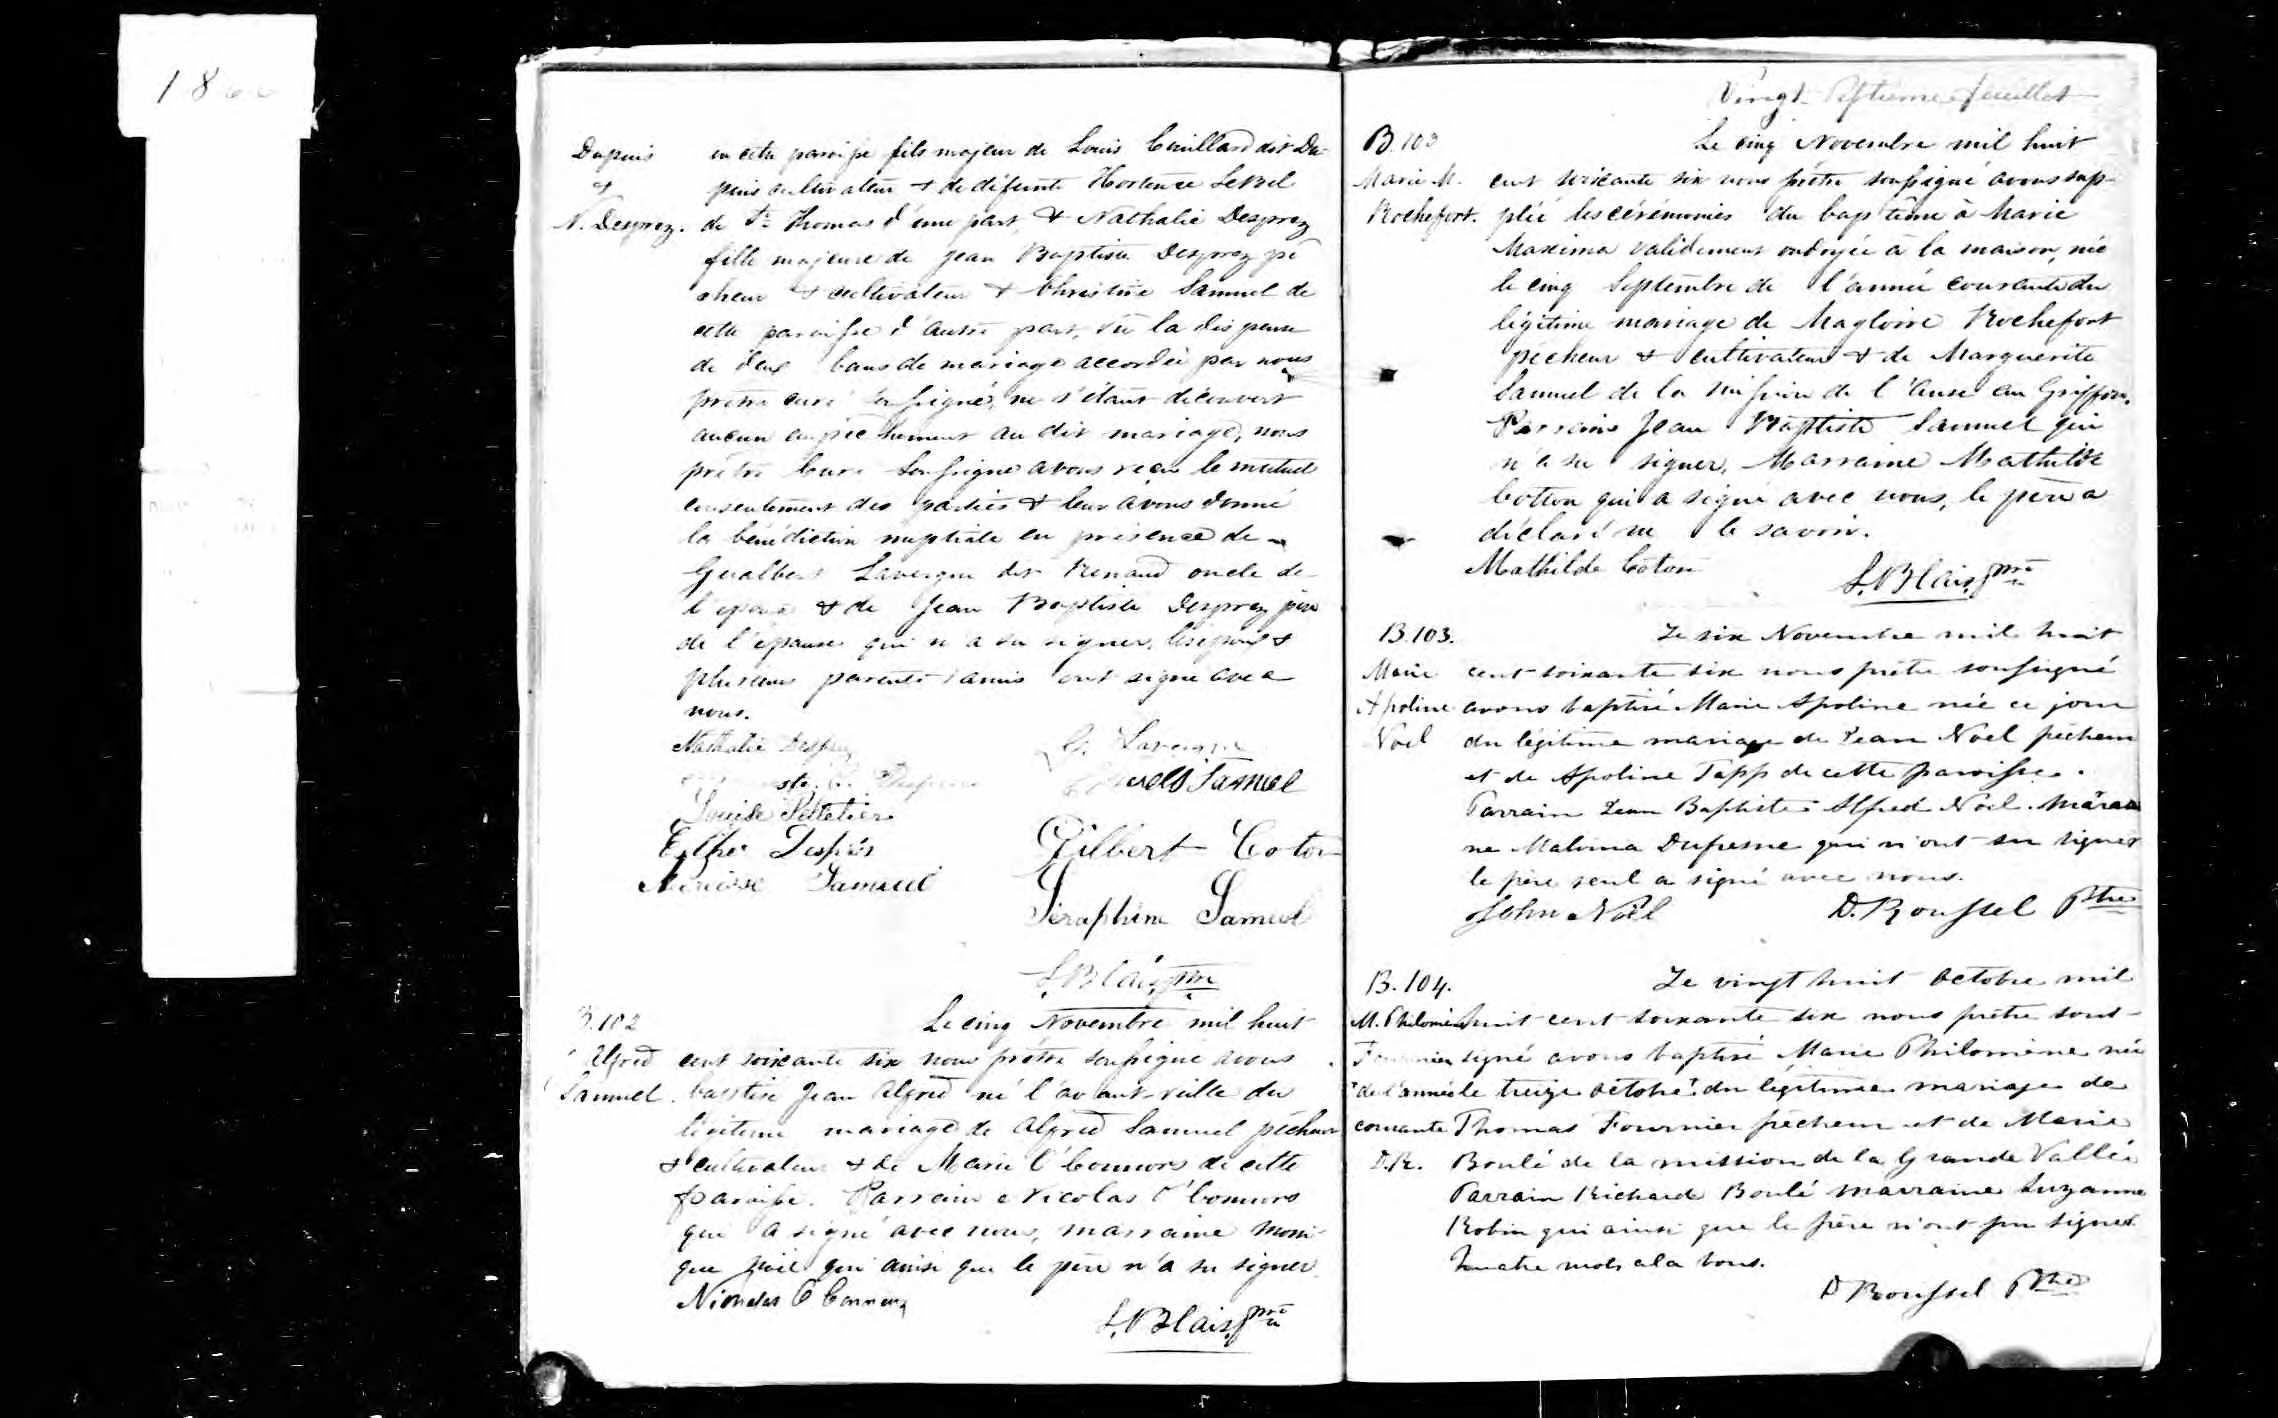 1866
Dupuis
&
N. Desprez.
en cette paroisse fils majeur de Louis Couillard dit Du-
puis cultivateur & de défunte Hortense LeBel
de St Thomas d'une part & Nathalie Desprez
fille majeure de Jean Baptiste Desprez pê
cheur & cultivateur & Christine Samuel de
cette paroisse d'autre part, vu la dispense
de deux bans de mariage accordée par nous
prêtre curé soussigné, ne s'étant découvert
aucun empêchement au dit mariage, nous
prêtre Curé soussigné avons reçu le mutuel
consentement des parties & leur avons donné
la bénédiction nuptiale en présence de
Gualbert Lavergne dit Renaud oncle de
l'époux & de Jean Baptiste Desprez père
de l'épouse qui n'a su signer, l'époux &
plusieurs parents & amis ont signé avec
nous.
Nathalie Desprez
G. Lavergne
Samuel
Louise Pelletier
Esther Després
Gilbert Coton
Samuel
Séraphine Samuel
L. Blais Ptre
B. 102
Alfred
Samuel.
Le cinq Novembre mil huit
cent soixante six nous prêtre soussigné avons
baptisé Jean Alfred né l'avant-veille du
légitime mariage de Alfred Samuel pêcheur
& cultivateur & de Marie O'Connors de cette
paroisse. Parrain Nicolas O'Connors
qui a signé avec nous, marraine Moni-
que Noël qui ainsi que le père n'a su signer.
Nicholas O Connors
L. Blais Ptre
Vingt Septième feuillet
B. 103
Marie M.
Rochefort.
Le cinq Novembre mil huit
cent soixante six nous prêtre soussigné avons sup-
pléé les cérémonies du baptême à Marie
Maxima validement ondoyée à la maison, née
le cinq Septembre de l'année courante du
légitime mariage de Magloire Rochefort
pêcheur & cultivateur & de Marguerite
Samuel de la mission de l'Anse au Griffon.
Parrain Jean Baptiste Samuel qui
n'a su signer, Marraine Mathilde
Cotton qui a signé avec nous, le père a
déclaré ne le savoir.
Mathilde Coton
L. Blais Ptre
B. 103.
Marie
Apoline
Noel
Le six Novembre mil huit
cent soixante six nous prêtre soussigné
avons baptisé Marie Apoline née ce jour
du légitime mariage de Jean Noel pêcheur
et de Apoline Tapp de cette paroisse.
Parrain Jean Baptiste Alfred Noel. Marrai
ne Malvina Dufresne qui n'ont su signer
le père seul a signé avec nous.
John Noel
D. Roussel Ptre
B. 104.
M. Philomène
Fournier
+ de l'année
courante
D.R.
Le vingt huit octobre mil
huit cent soixante six nous prêtre sous-
signé avons baptisé Marie Philomène née
le treize octobre + du légitime mariage de
Thomas Fournier pêcheur et de Marie
Boulé de la mission de la Grande Vallée
Parrain Richard Boulé marraine Suzanne
Robin qui ainsi que le père n'ont pu signer.
Quatre mots à la bons.
D Roussel Ptre